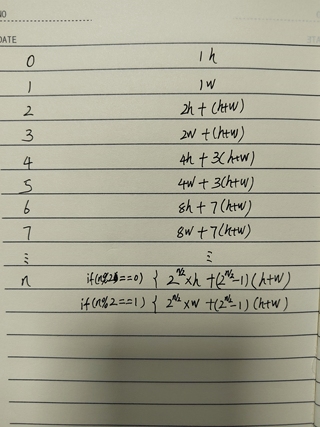 NO
DATE
0 1h
1 1w
2 2h + (h+w)
3 2w + (h+w)
4 4h + 3(h+w)
5 4w + 3(h+w)
6 8h + 7(h+w)
7 8w + 7(h+w)
⋮ ⋮
n if(n%2==0) { 2^(n/2) × h + (2^(n/2) -1) (h+w)
if(n%2==1) { 2^(n/2) × w + (2^(n/2) -1) (h+w)